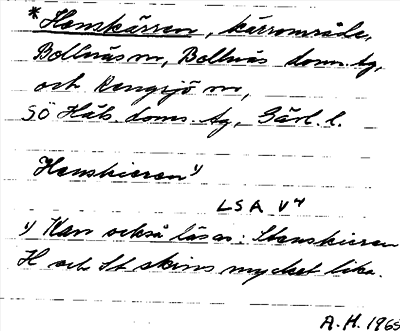 *Henskärren, kärrområde,
Bollnäs sn, Bollnäs doms. tg,
och Rengsjö sn,
SÖ Häls. doms. tg, Gävl. l.
Henskieren¹⁾
LSA V4
¹⁾ Kan också läsas: Stenskieren
H och St skrivs mycket lika.
A.H. 1965